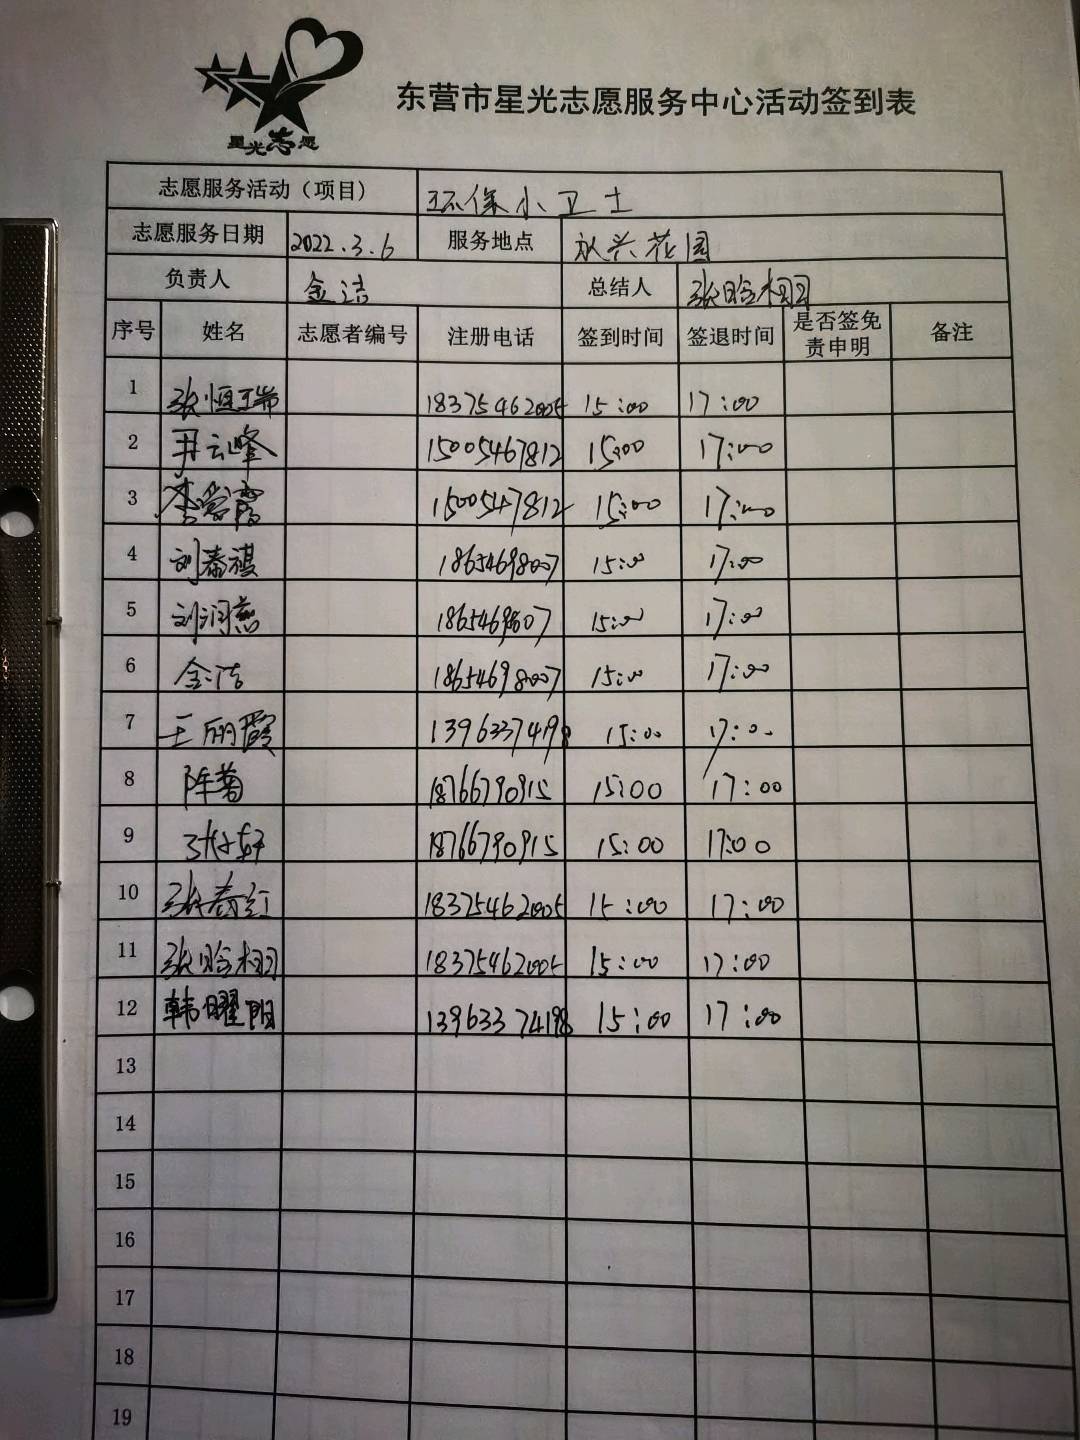 星光志愿
东营市星光志愿服务中心活动签到表
志愿服务活动（项目） 环保小卫士
志愿服务日期 2022.3.6 服务地点 永兴花园
负责人 金洁 总结人 张晗栩
序号 姓名 志愿者编号 注册电话 签到时间 签退时间 是否签免责申明 备注
1 张恒瑞 18375462005 15:00 17:00
2 尹云峰 15005467812 15:00 17:00
3 李爱霞 1500547812 15:00 17:00
4 刘泰祺 18654698007 15:00 17:00
5 刘润燕 15:00 17:00
6 金洁 18654698007 15:00 17:00
7 王丽霞 13963374198 15:00 17:00
8 陈菊 18766790915 15:00 17:00
9 18766790915 15:00 17:00
10 张春红 18375462005 15:00 17:00
11 张晗栩 18375462005 15:00 17:00
12 韩曜阳 13963374198 15:00 17:00
13
14
15
16
17
18
19